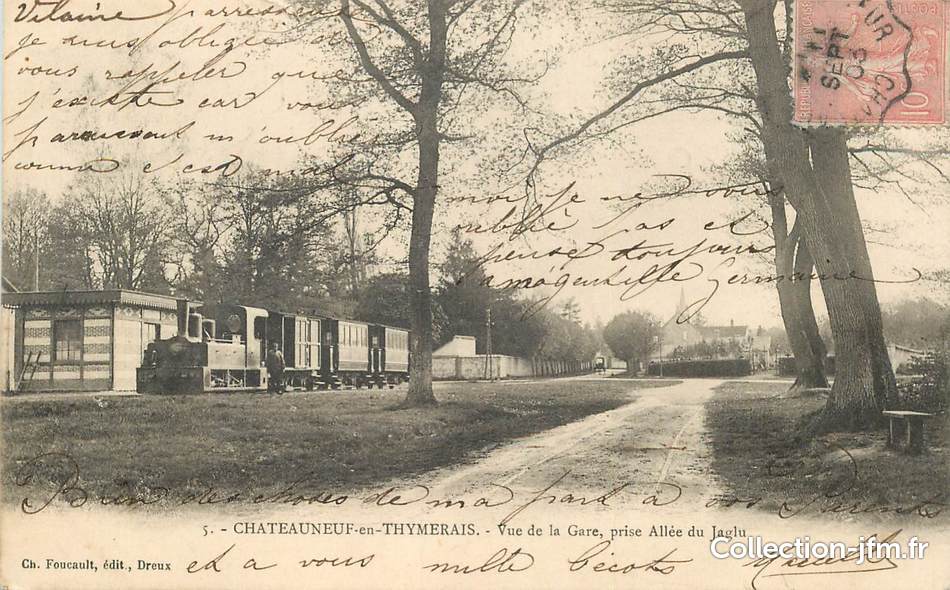 Vilaine paresseuse
je suis obligée de
vous rappeler que
j'existe car vous
paraissant m'oublié
comme c'est mal
moi je ne vous
oublié pas et
pense toujours
à ma gentille Germaine
REPUBLIQUE
POSTES
SEPT
03
10
Bien des choses de ma part à vos Parents
5. - CHATEAUNEUF-en-THYMERAIS. - Vue de la Gare, prise Allée du Jaglu
Collection-jfm.fr
Ch. Foucault, édit., Dreux
et a vous mille bécots Marcelle